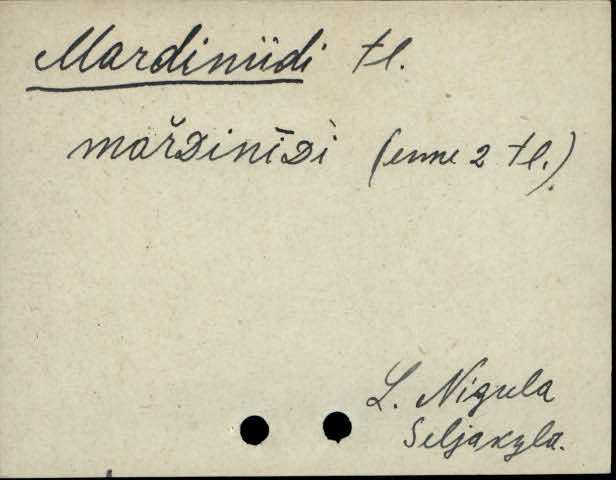 Mardiniidi tl.
mar̆ᴅinīᴅì (enne 2 tl.)
L. Nigula
Seljaküla.